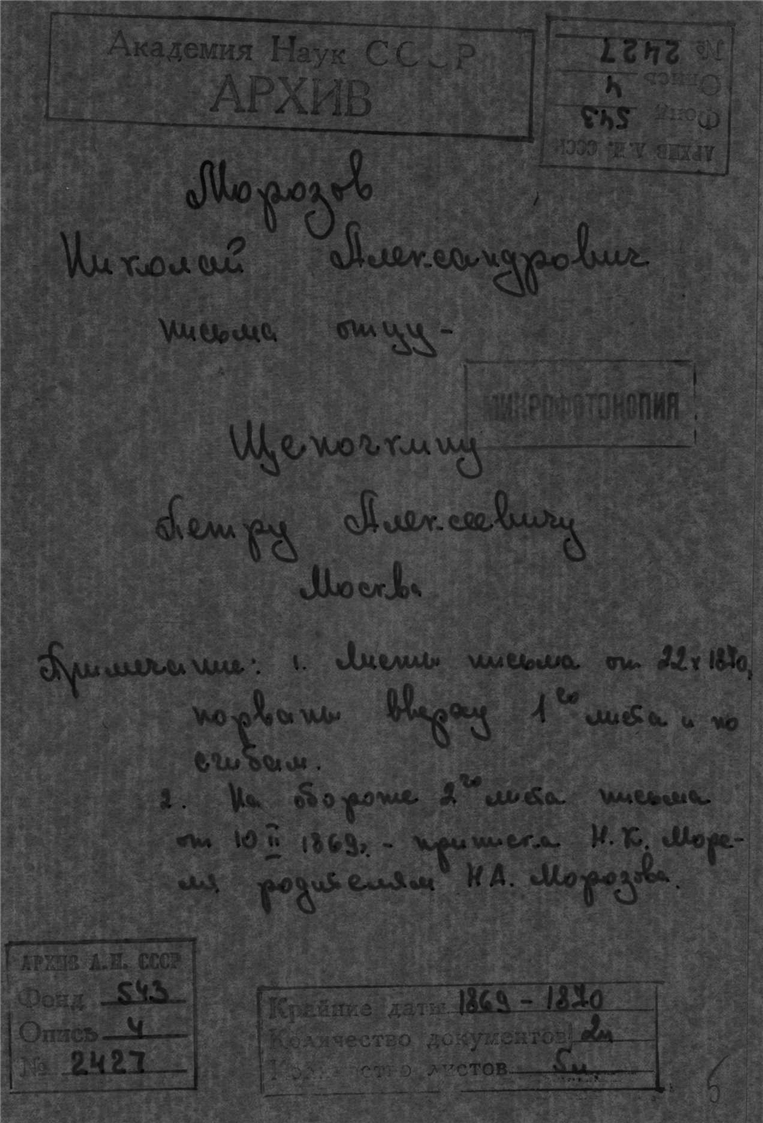 Академия Наук СССР
АРХИВ
№ 2427
Опись 4
Фонд 543
АРХИВ А.Н. СССР
Морозов
Николай Александрович
письма отцу -
МИКРОФОТОКОПИЯ
Щепочкину
Петру Алексеевичу
Москва
Примечание: 1. Листы письма от 22 х 1870,
порваны вверху 1го листа и по
сгибам.
2. На обороте 2го листа письма
от 10 II 1869г. - приписка Н.К. Море-
ля родителям Н.А. Морозова.
АРХИВ А.Н. СССР
Фонд 543
Опись 4
№ 2427
Крайние даты 1869 - 1870
Количество документов 2
Количество листов 5
5